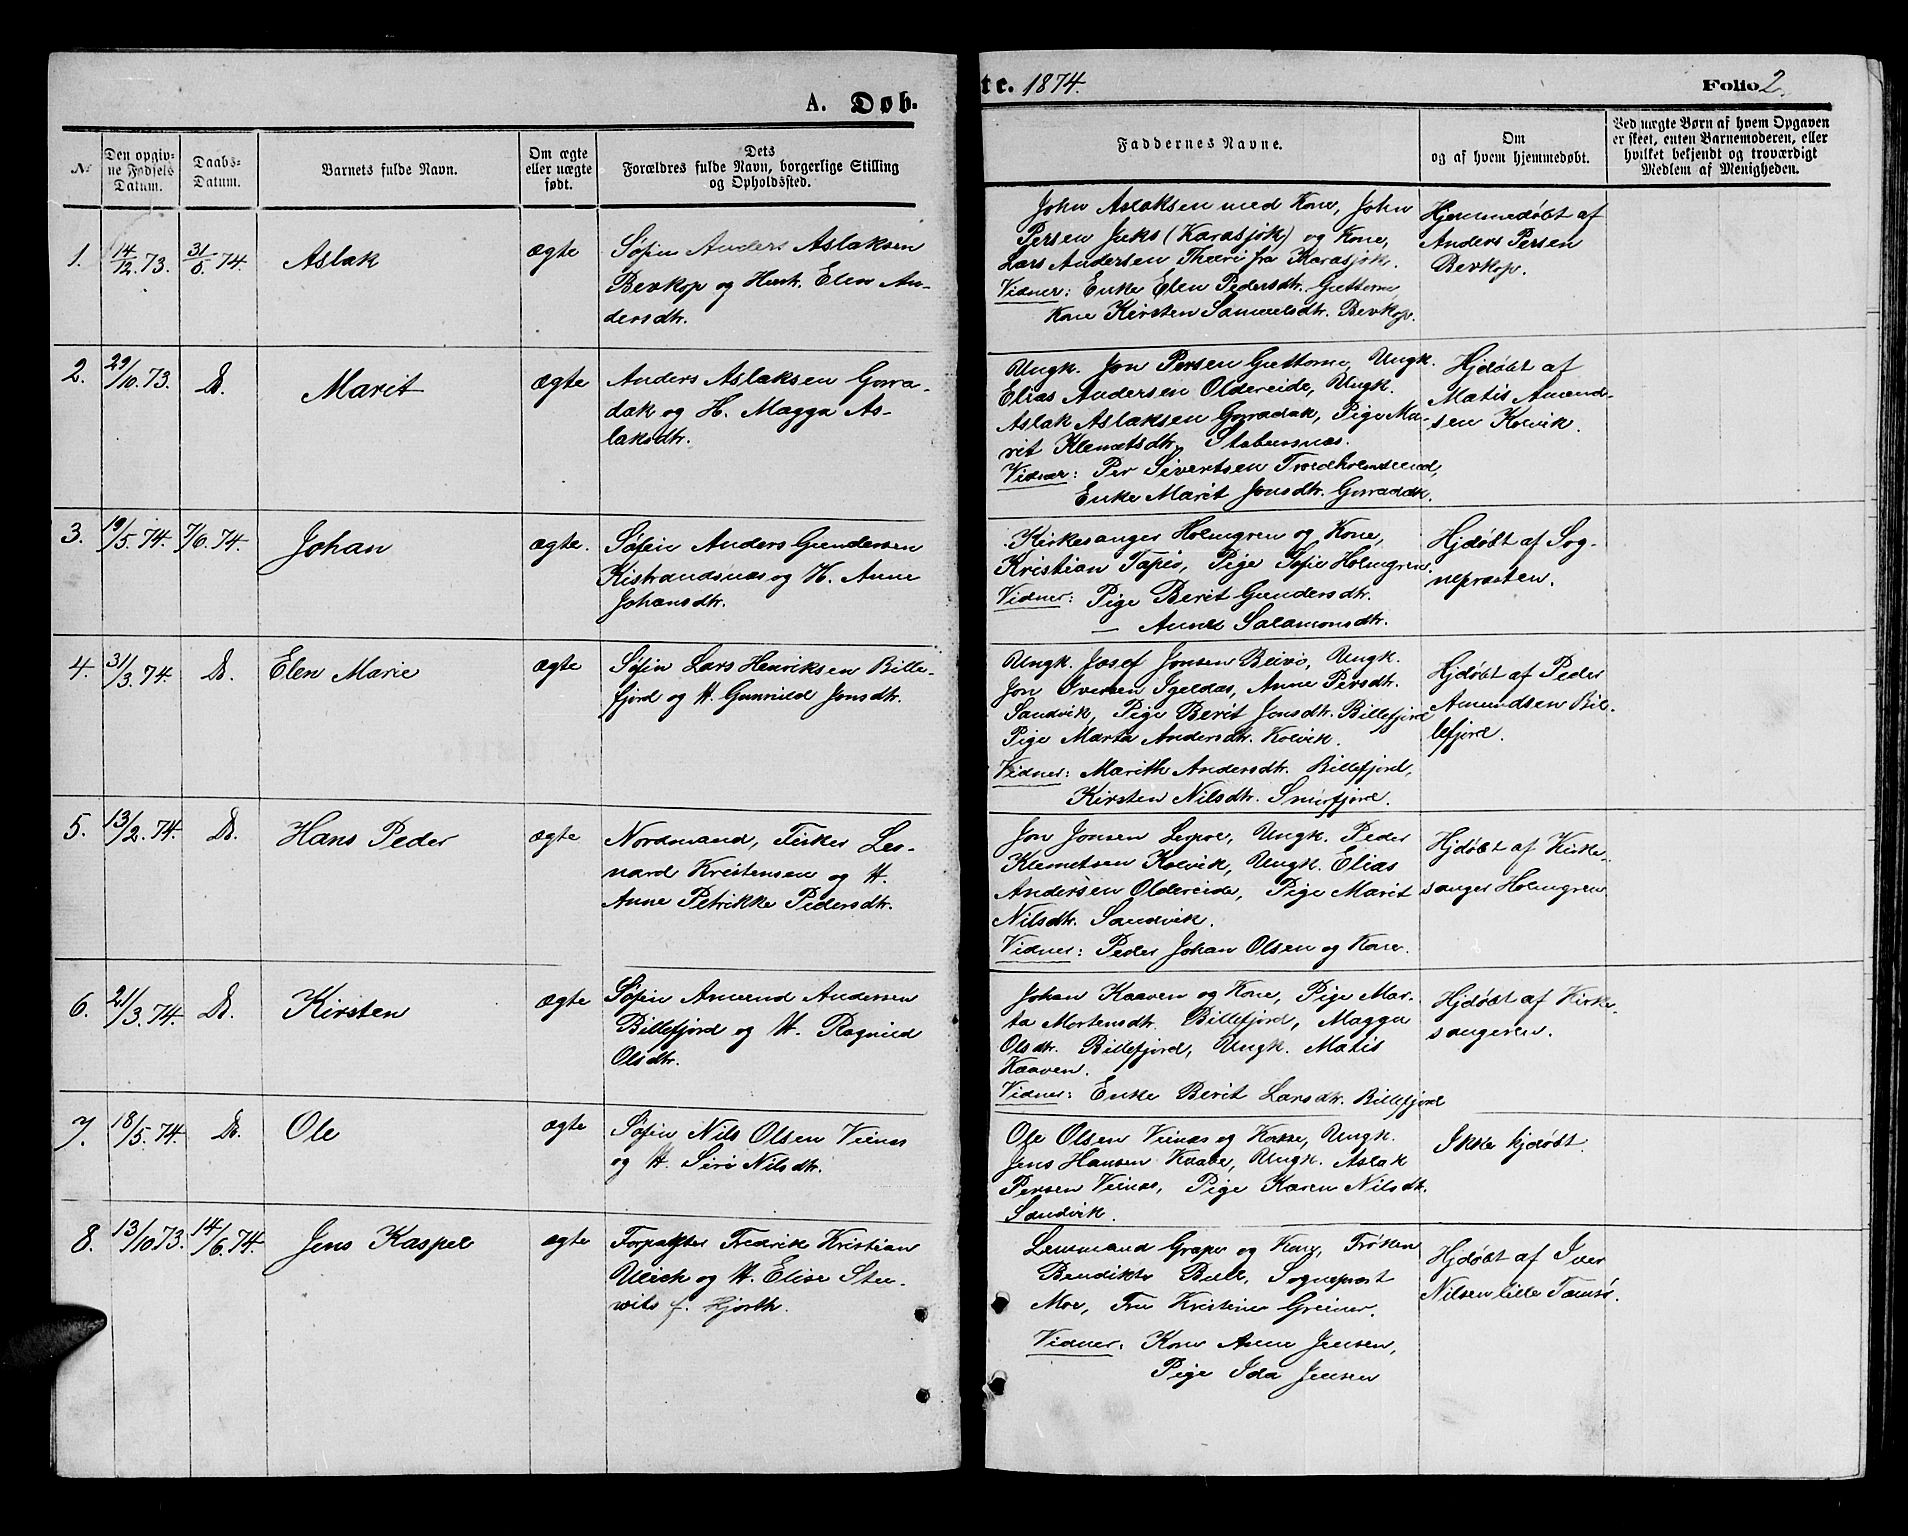 A. Døbte. 1874.
Folio 2.
№
Den opgivne Fødsels Datum.
Daabs-Datum.
Barnets fulde Navn.
Om ægte eller uægte født.
Dets Forældres fulde Navn, borgerlige Stilling og Opholdssted.
Faddernes Navne.
Om og af hvem hjemmedøbt.
Ved uægte Børn af hvem Opgaven er skeet, enten Barnemoderen, eller hvilket bekjendt og troværdigt Medlem af Menigheden.
1. 14/12. 73. 31/5 74. Aslak ægte
Søfin Anders Aslaksen
Bevkop og Hust. Elen An-
dersdtr.
John Aslaksen med Kone, John
Persen Juks (Karasjok) og Kone,
Lars Andersen fra Karasjok.
Vidner: Enke Elen Pedersdtr. Gættorne
Kone Kirsten Samuelsdtr. Bevkop.
Hjemmedøbt af
Anders Persen
Bevkop.
2. 29/10. 73. D. Marit ægte
Anders Aslaksen Gorra-
dak og H. Magga As-
laksdtr.
Ungk. Jon Persen Gættorne, Ungk.
Elias Andersen Oldereide, Ungk.
Aslak Aslaksen Gorradak, Pige Ma-
rit Klemetsdtr. Stabursnæs.
Vidner: Per Sivertsen Troldholmsund,
Enke Marit Jonsdtr. Gorradak.
Hjdøbt af
Matis Amund-
sen Kolvik.
3. 19/5. 74. 7/6. 74. Johan ægte.
Søfin Anders Gundersen
Kistrandsnæs og H. Anne
Johansdtr.
Kirkesanger Holmgren og Kone,
Kristian Tapio, Pige Sofie Holmgren.
Vidner: Pige Berit Gundersdtr.
— Anne Salamonsdtr.
Hjdøbt af Sog-
nepræsten.
4. 31/3. 74. D. Elen Marie ægte
Søfin Lars Henriksen Bille-
fjord og H. Gunnild Jonsdtr.
Ungk. Josef Jonsen Beivo, Ungk.
Jon Iversen Igeldas, Anne Persdtr.
Sandvik, Pige Berit Jonsdtr. Billefjord
Pige Marta Andersdtr. Kolvik.
Vidner: Marith Andersdtr. Billefjord,
Kirsten Nilsdtr. Smørfjord.
Hjdøbt af Peder
Amundsen Bil-
lefjord.
5. 13/2. 74. D. Hans Peder ægte
Nordmand, Fisker Leo-
nard Kristensen og H.
Anne Petrikke Pedersdtr.
Jon Jonsen Lerpoe, Ungk. Peder
Klemetsen Kolvik, Ungk. Elias
Andersen Oldereide, Pige Marit
Nilsdtr. Sandvik.
Vidner: Peder Johan Olsen og Kone.
Hjdøbt af Kirke-
sanger Holmgren
6. 21/3. 74. D. Kirsten ægte
Søfin Amund Andersen
Billefjord og H. Ragnild
Olsdtr.
Johan Kaaven og Kone, Pige Mar-
ta Mortensdtr. Billefjord, Magga
Olsdtr. Billefjord, Ungk. Matis
Kaaven.
Vidner: Enke Berit Larsdtr. Billefjord
Hjdøbt af Kirke-
sangeren.
7. 18/5. 74. D. Ole ægte
Søfin Nils Olsen Veines
og H. Siri Nilsdtr.
Ole Olsen Veines og Kone, Ungk.
Jens Hansen Kaabe, Ungk. Aslak
Persen Veines, Pige Karen Nilsdtr.
Sandvik.
Ikke hjdøbt.
8. 13/10 73. 14/6. 74. Jens Kasper ægte
Forpagter Fredrik Kristian
Ulich og H. Elise Stu-
wits f. Hjorth.
Lensmand Grape og Kone, Frøken
Bendikte Bull, Sognepræst
Moe, Fru Kristine Greiner.
Vidner: Kone Anne Jensen,
Pige Ida Jensen
Hjdøbt af Iver
Nilsen lille Tamsø.